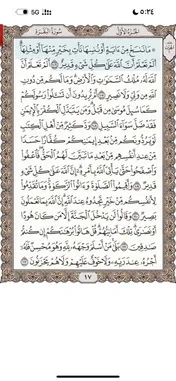 ٥:٢٤
5G
الجزء الأول
سورة البقرة
۞ مَا نَنسَخْ مِنْ ءَايَةٍ أَوْ نُنسِهَا نَأْتِ بِخَيْرٍ مِّنْهَآ أَوْ مِثْلِهَآ
أَلَمْ تَعْلَمْ أَنَّ ٱللَّهَ عَلَىٰ كُلِّ شَىْءٍ قَدِيرٌ ١٠٦ أَلَمْ تَعْلَمْ أَنَّ
ٱللَّهَ لَهُۥ مُلْكُ ٱلسَّمَٰوَٰتِ وَٱلْأَرْضِ وَمَا لَكُم مِّن دُونِ
ٱللَّهِ مِن وَلِىٍّ وَلَا نَصِيرٍ ١٠٧ أَمْ تُرِيدُونَ أَن تَسْـَٔلُوا۟ رَسُولَكُمْ
كَمَا سُئِلَ مُوسَىٰ مِن قَبْلُ وَمَن يَتَبَدَّلِ ٱلْكُفْرَ بِٱلْإِيمَٰنِ
فَقَدْ ضَلَّ سَوَآءَ ٱلسَّبِيلِ ١٠٨ وَدَّ كَثِيرٌ مِّنْ أَهْلِ ٱلْكِتَٰبِ
لَوْ يَرُدُّونَكُم مِّنۢ بَعْدِ إِيمَٰنِكُمْ كُفَّارًا حَسَدًا
مِّنْ عِندِ أَنفُسِهِم مِّنۢ بَعْدِ مَا تَبَيَّنَ لَهُمُ ٱلْحَقُّ فَٱعْفُوا۟
وَٱصْفَحُوا۟ حَتَّىٰ يَأْتِىَ ٱللَّهُ بِأَمْرِهِۦٓ إِنَّ ٱللَّهَ عَلَىٰ كُلِّ شَىْءٍ
قَدِيرٌ ١٠٩ وَأَقِيمُوا۟ ٱلصَّلَوٰةَ وَءَاتُوا۟ ٱلزَّكَوٰةَ وَمَا تُقَدِّمُوا۟
لِأَنفُسِكُم مِّنْ خَيْرٍ تَجِدُوهُ عِندَ ٱللَّهِ إِنَّ ٱللَّهَ بِمَا تَعْمَلُونَ
بَصِيرٌ ١١٠ وَقَالُوا۟ لَن يَدْخُلَ ٱلْجَنَّةَ إِلَّا مَن كَانَ هُودًا
أَوْ نَصَٰرَىٰ تِلْكَ أَمَانِيُّهُمْ قُلْ هَاتُوا۟ بُرْهَٰنَكُمْ إِن كُنتُمْ
صَٰدِقِينَ ١١١ بَلَىٰ مَنْ أَسْلَمَ وَجْهَهُۥ لِلَّهِ وَهُوَ مُحْسِنٌ فَلَهُۥٓ
أَجْرُهُۥ عِندَ رَبِّهِۦ وَلَا خَوْفٌ عَلَيْهِمْ وَلَا هُمْ يَحْزَنُونَ ١١٢
١٧